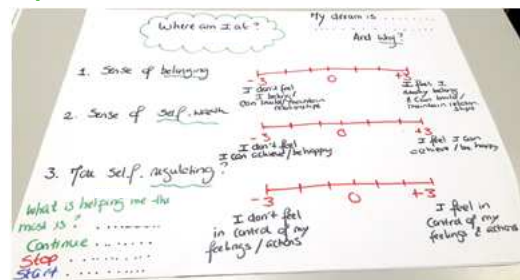 Where am I at?
My dream is ............
................
And Why?
1. Sense of belonging
-3 0 +3
I don't feel
I belong /
can build/maintain
relationships
I feel I
belong
& can build/
maintain relation
ships
2. Sense of self-worth
0 +3
I don't feel
I can achieve/be happy
I feel I can
achieve / be happy
3. You self-regulating?
-3 0 +3
I don't feel
in control of my
feelings / actions
I feel in
Control of my
feelings & actions
What is helping me the
most is? ........
Continue ........
Stop ........
Start ........